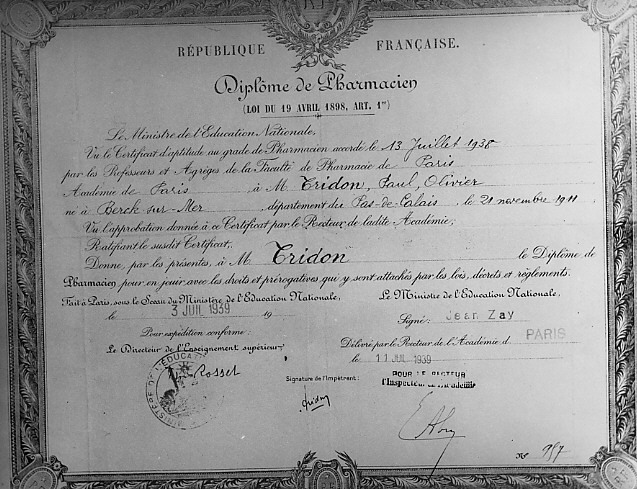 RF
RÉPUBLIQUE FRANÇAISE.
Diplôme de Pharmacien
(LOI DU 19 AVRIL 1898, ART. 1er)
Le Ministre de l'Education Nationale,
Vu le Certificat d'aptitude au grade de Pharmacien accordé le 13 Juillet 1938
par les Professeurs et Agrégés de la Faculté de Pharmacie de Paris
Académie de Paris à M Tridon, Paul, Olivier
né à Berck-sur-Mer, département du Pas-de-Calais, le 21 novembre 1911,
Vu l'approbation donnée à ce Certificat par le Recteur de ladite Académie;
Ratifiant le susdit Certificat,
Donne, par les présentes, à M Tridon le Diplôme de
Pharmacien, pour en jouir avec les droits et prérogatives qui y sont attachés par les lois, décrets et règlements.
Fait à Paris, sous le Sceau du Ministère de l'Education Nationale, Le Ministre de l'Education Nationale,
le 3 JUIL 1939 19 Signé: Jean Zay
Pour expédition conforme: Délivré par le Recteur de l'Académie d PARIS
Le Directeur de l'Enseignement supérieur, le 11 JUIL 1939
Rosset Signature de l'Impétrant: POUR LE RECTEUR
l'Inspecteur de l'Académie
Tridon
MINISTÈRE DE L'ÉDUCATION
No